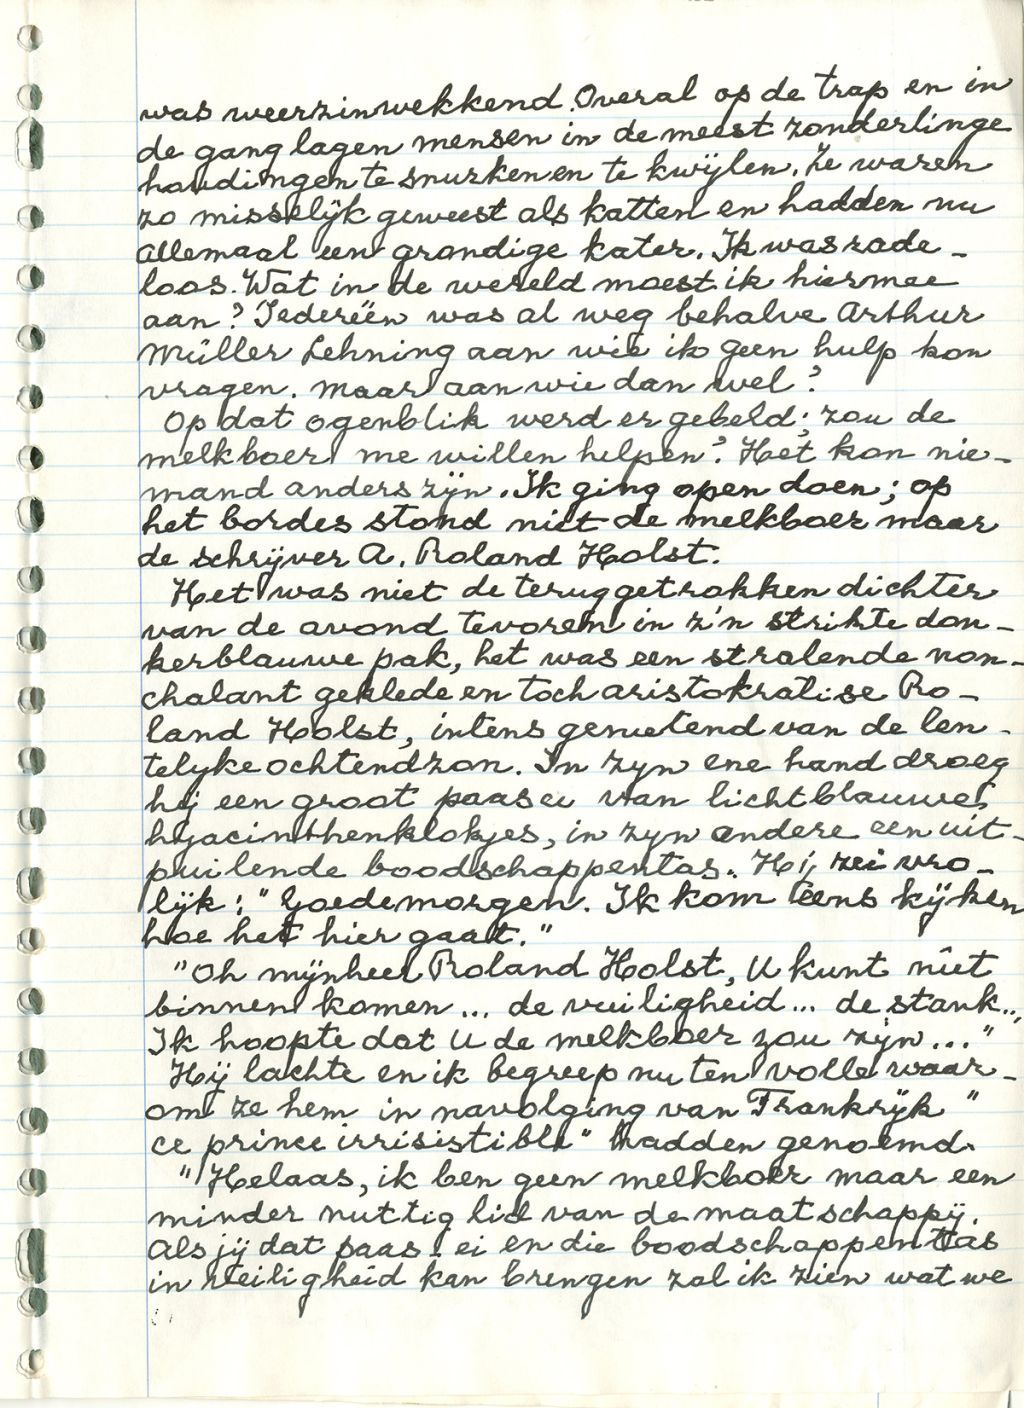 was weerzinwekkend. Overal op de trap en in
de gang lagen mensen in de meest zonderlinge
houdingen te snurken en te kwijlen. Ze waren
zo misselijk geweest als katten en hadden nu
allemaal een grondige kater. Ik was rade-
loos. Wat in de wereld moest ik hiermee
aan? Iedereën was al weg behalve Arthur
Müller Lehning aan wie ik geen hulp kon
vragen. Maar aan wie dan wel?
Op dat ogenblik werd er gebeld; zou de
melkboer me willen helpen? Het kon nie-
mand anders zijn. Ik ging open doen; op
het bordes stond niet de melkboer maar
de schrijver A. Roland Holst.
Het was niet de teruggetrokken dichter
van de avond tevoren in z'n strikte don-
kerblauwe pak, het was een stralende non-
chalant geklede en toch aristokratise Ro-
land Holst, intens genietend van de len-
telyke ochtendzon. In zyn ene hand droeg
hij een groot paasei van lichtblauwe
hyacinthenklokjes, in zyn andere een uit-
puilende boodschappentas. Hij zei vro-
lijk: "Goedemorgen. Ik kom eens kijken
hoe het hier gaat."
"Oh mijnheer Roland Holst, U kunt niet
binnen komen... de vuiligheid... de stank...,
Ik hoopte dat U de melkboer zou zijn..."
Hij lachte en ik begreep nu ten volle waar-
om ze hem in navolging van Frankrijk "
ce prince irrisistible" hadden genoemd.
"Helaas, ik ben geen melkboer maar een
minder nuttig lid van de maatschappij.
Als jij dat paas-ei en die boodschappentas
in veiligheid kan brengen zal ik zien wat we